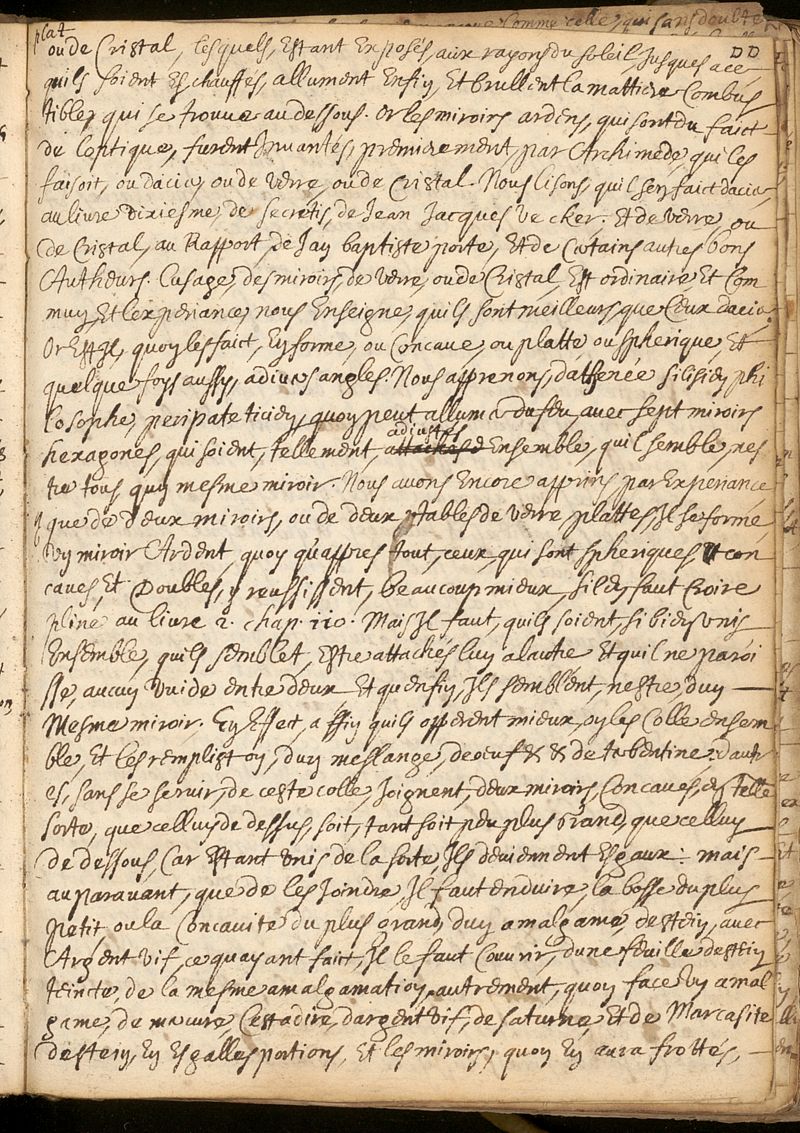 plat
DD
ou de Cristal, lesquels, Estant Exposés, aux rayons du soleil, Jusques a ce,
quils soient Eschauffés, allument Enfin, Et brullent la mattiere Combus
tible, qui se trouue au dessous. Or les miroirs ardens, qui sont du faict
de loptique, furent Inuantés, premierement, par Archimede, qui les
faisoit, ou dacier, ou de verre, ou de Cristal. Nous lisons, quil sen faict dacier
au liure dixiesme, de secretis, de Jean Jacques Vecker. Et de verre ou
de Cristal, au Rapport, de Jan baptiste porte, Et de Certains autres bons
Autheurs. Lusage, des miroirs, de verre, ou de Cristal, Est ordinaire, Et Com
mun, Et lexperiance, nous Enseigne, quils sont meilleurs, que Ceux dacier.
Or Est Il, quon les faict, En forme, ou Concaue, ou platte ou spherique, Et
quelque foys aussy, a diuers angles. Nous apprenons, dathenée silisien phi
losophe, peripateticien, quon peut allumer du feu, auec sept miroirs
adiustés
hexagones, qui soient, tellement, attachés Ensemble, quil semble, nes
tre tous qun mesme miroir. Nous auons Encore appris, par Experiance
que de deux miroirs, ou de deux tables de verre plattes, Il se forme,
Vn miroir Ardent, quoy qu'appres tout, ceux, qui sont spheriques Et con
caues, Et Doubles, y reussissent, beaucoup mieux, sil en faut Croire
pline au liure 2. chap. 110. Mais Il faut, quils soient, si bien vnis
Ensemble, quils semblet, Estre attachés lun a lautre Et quil ne paroi
sse, aucun Vuide entre deux Et quenfin, Ils semblent, nestre, dun
Mesme miroir. En Effect, affin quils opperent mieux, on les Colle ensem
ble, Et les remplist on, dun meslange, de oeufs & de terbentine: dautr
es, sans se seruir, de ceste colle, Joignent, deux miroirs, Concaues, en telle
sorte, que celluy de dessus, soit, tant soit peu plus Grand, que celluy
de dessous, Car Estant vnis de la sorte Ils deuiennent Esgaux: mais
auparauant, que de les Joindre, Il faut enduire, la bosse du plus
petit ou la Concauité du plus grand, dun amalgame, destein, auec
Argent Vif, ce quayant faict, Il le faut Couurir, dune feuille destein
teincte, de la mesme amalgamation, autrement, quon face Vn amal
game, de mercure, Cestadire, dargent Vif, de saturne Et de Marcasite
destein, En Esgalles portions, Et les miroirs, quon En aura frottés,